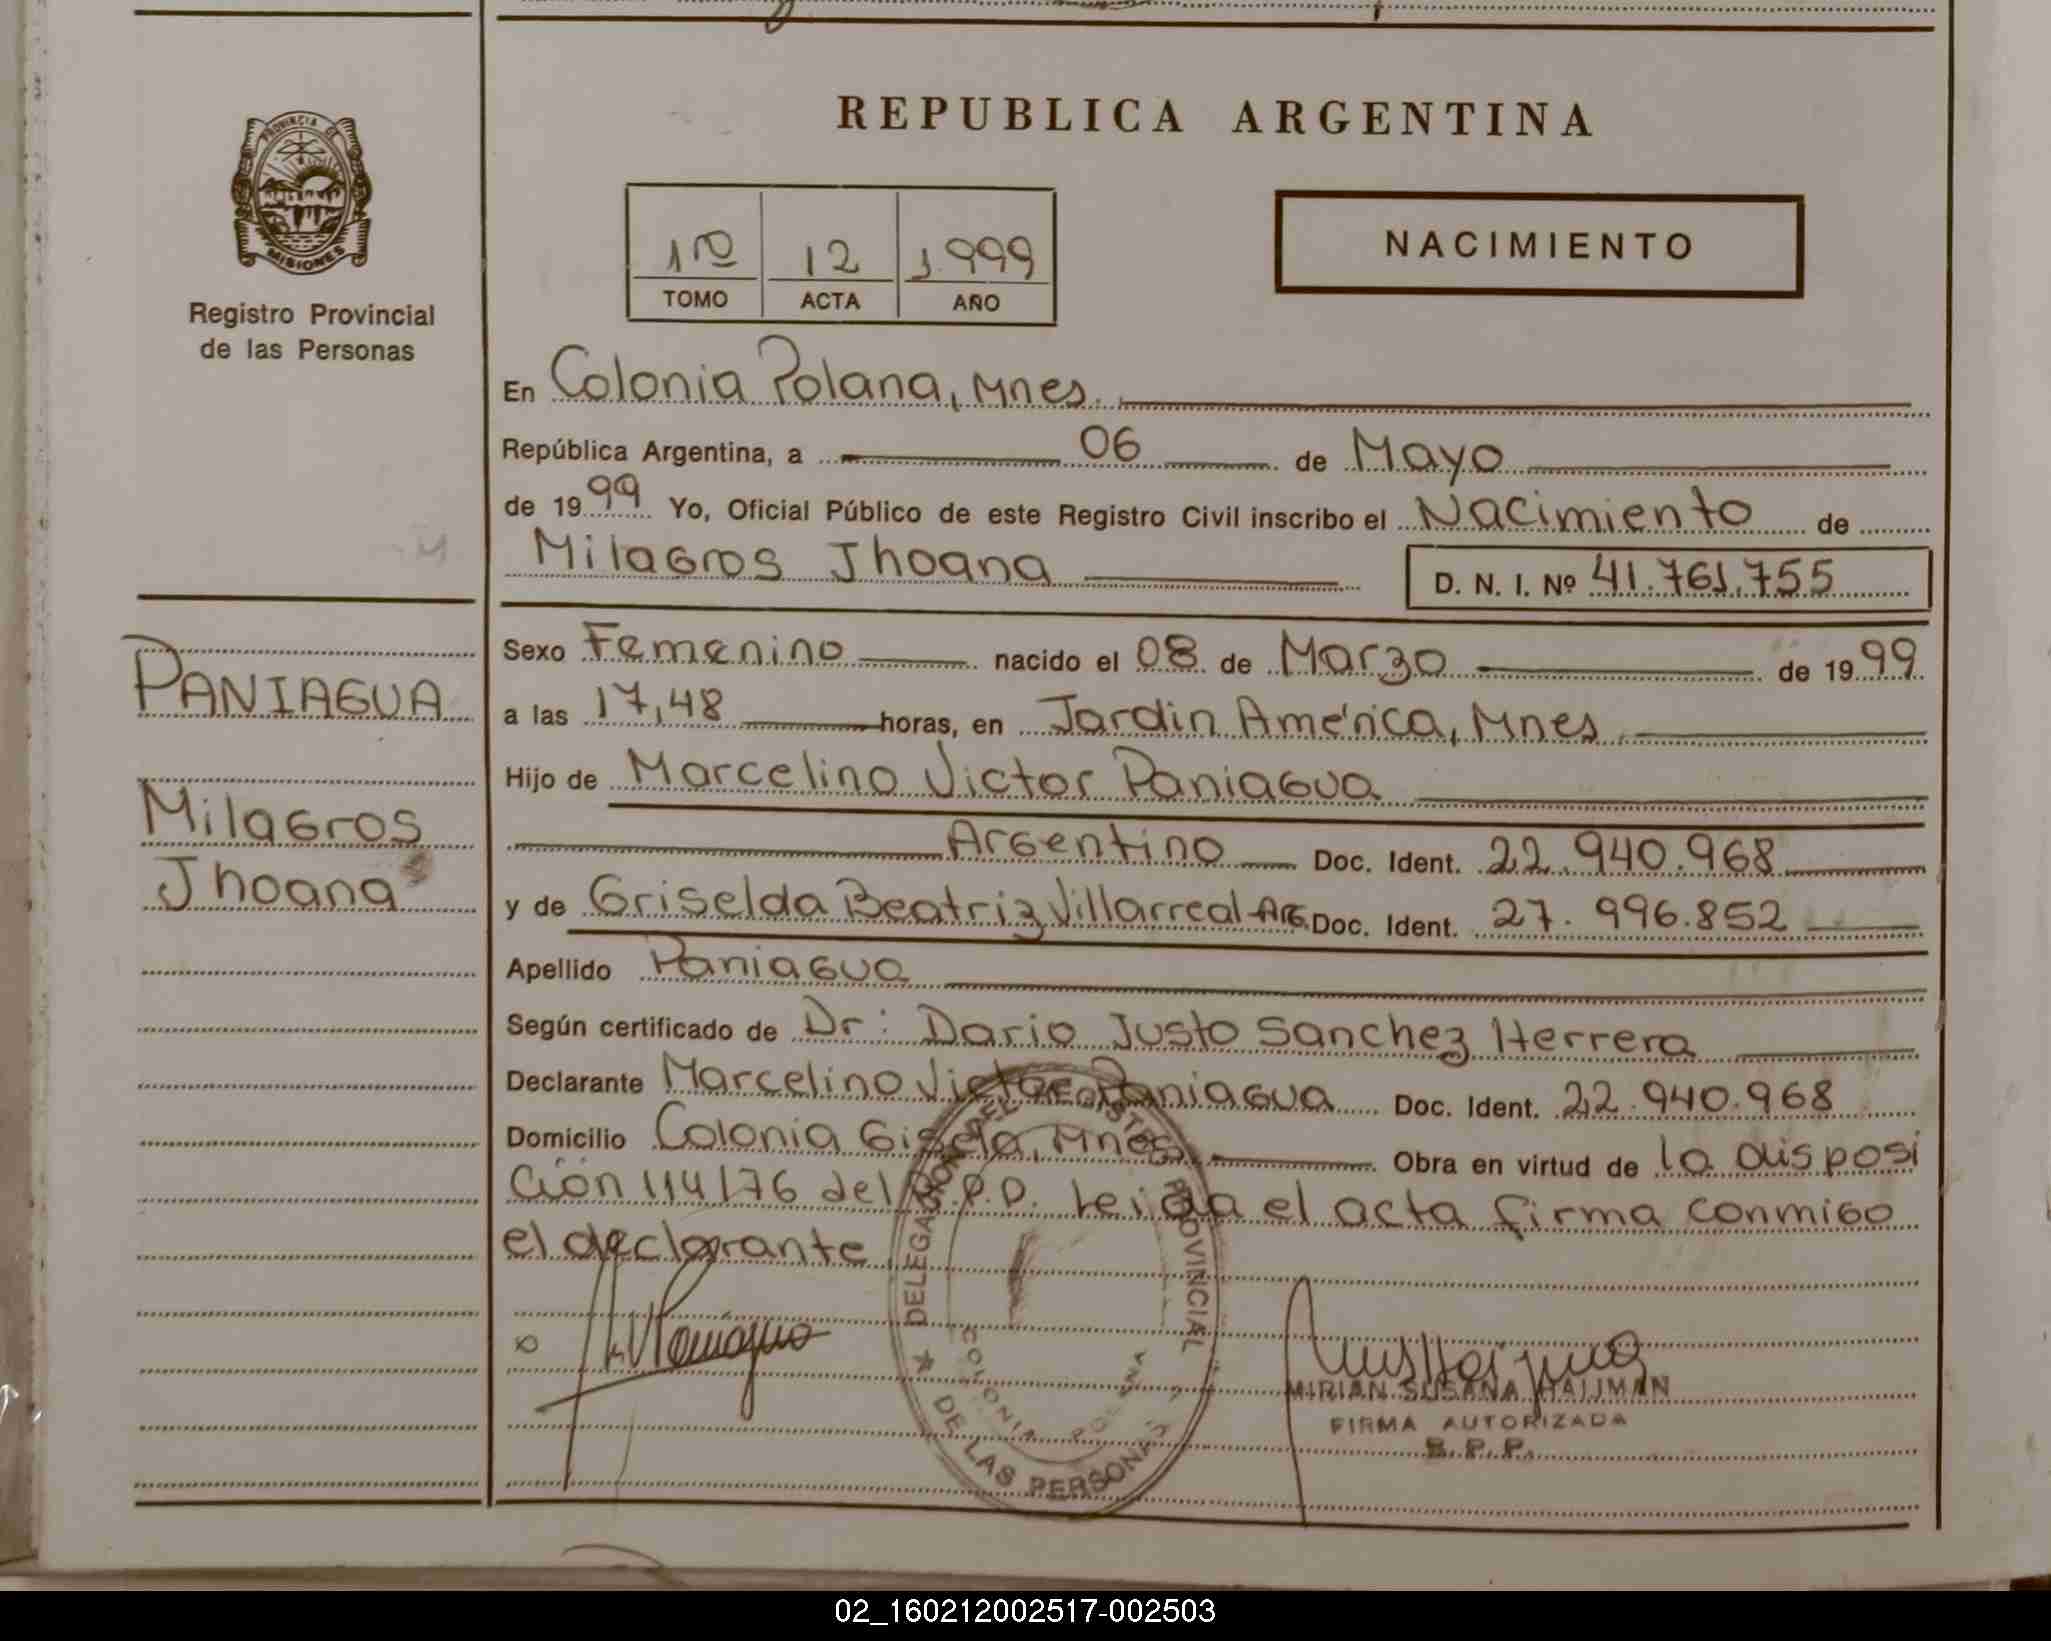 PROVINCIA DE
MISIONES
Registro Provincial
de las Personas
REPUBLICA ARGENTINA
1ro 12 1.999
TOMO ACTA AÑO
NACIMIENTO
En Colonia Polana, Mnes.
República Argentina, a 06 de Mayo
de 1999 Yo, Oficial Público de este Registro Civil inscribo el Nacimiento de
Milagros Jhoana D. N. I. Nº 41.761.755
PANIAGUA
Milagros
Jhoana
Sexo Femenino nacido el 08 de Marzo de 1999
a las 17,48 horas, en Jardin América, Mnes
Hijo de Marcelino Victor Paniagua
Argentino Doc. Ident. 22.940.968
y de Griselda Beatriz Villarreal-Arg. Doc. Ident. 27.996.852
Apellido Paniagua
Según certificado de Dr: Dario Justo Sanchez Herrera
Declarante Marcelino Victor Paniagua Doc. Ident. 22.940.968
Domicilio Colonia Gisela, Mnes. Obra en virtud de la disposi
ción 114/76 del R.P.P. Leida el acta firma conmigo
el declarante
DELEGACION DEL REGISTRO PROVINCIAL
DE LAS PERSONAS
COLONIA POLANA
MIRIAN SUSANA HAIJMAN
FIRMA AUTORIZADA
R.P.P.
02_160212002517-002503